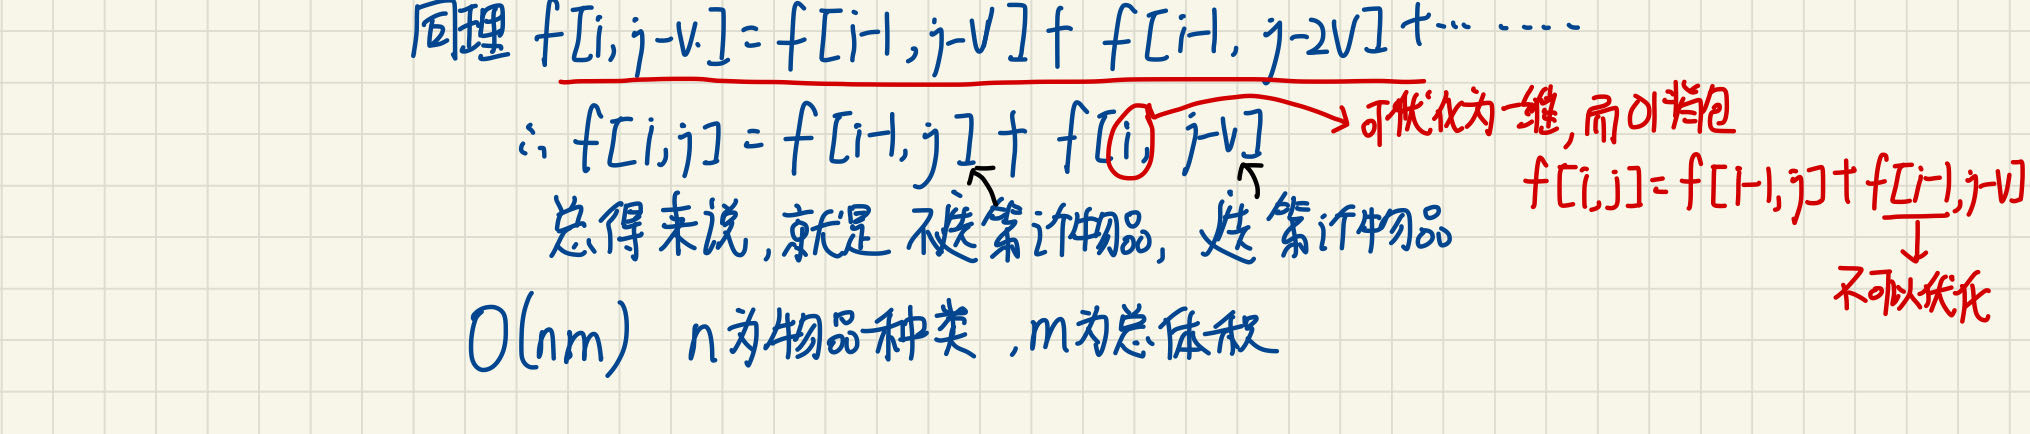 同理 f[i, j-v] = f[i-1, j-v] + f[i-1, j-2v] + ……
∴ f[i,j] = f[i-1,j] + f[i, j-v]
可优化为一维,而01背包
f[i,j] = f[i-1,j] + f[i-1,j-v]
总得来说,就是 不选第i件物品, 选第i件物品
不可以优化
O(nm) n为物品种类,m为总体积